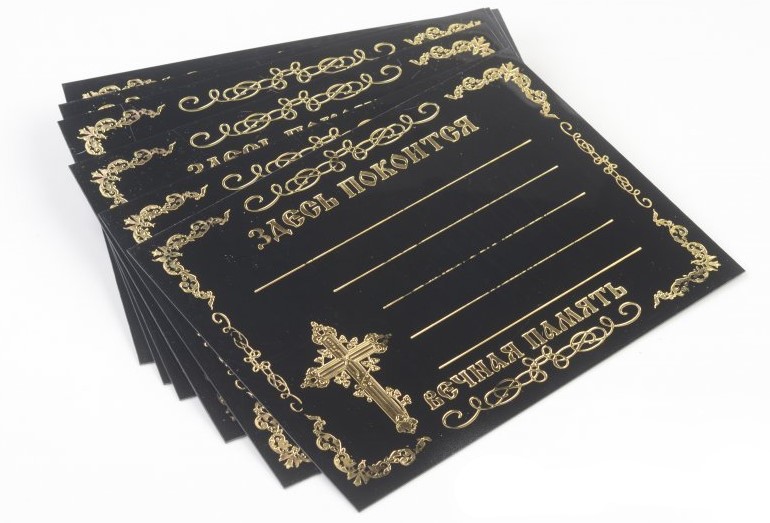 ЗДЕСЬ ПОКОИТСЯ
ВЕЧНАЯ ПАМЯТЬ